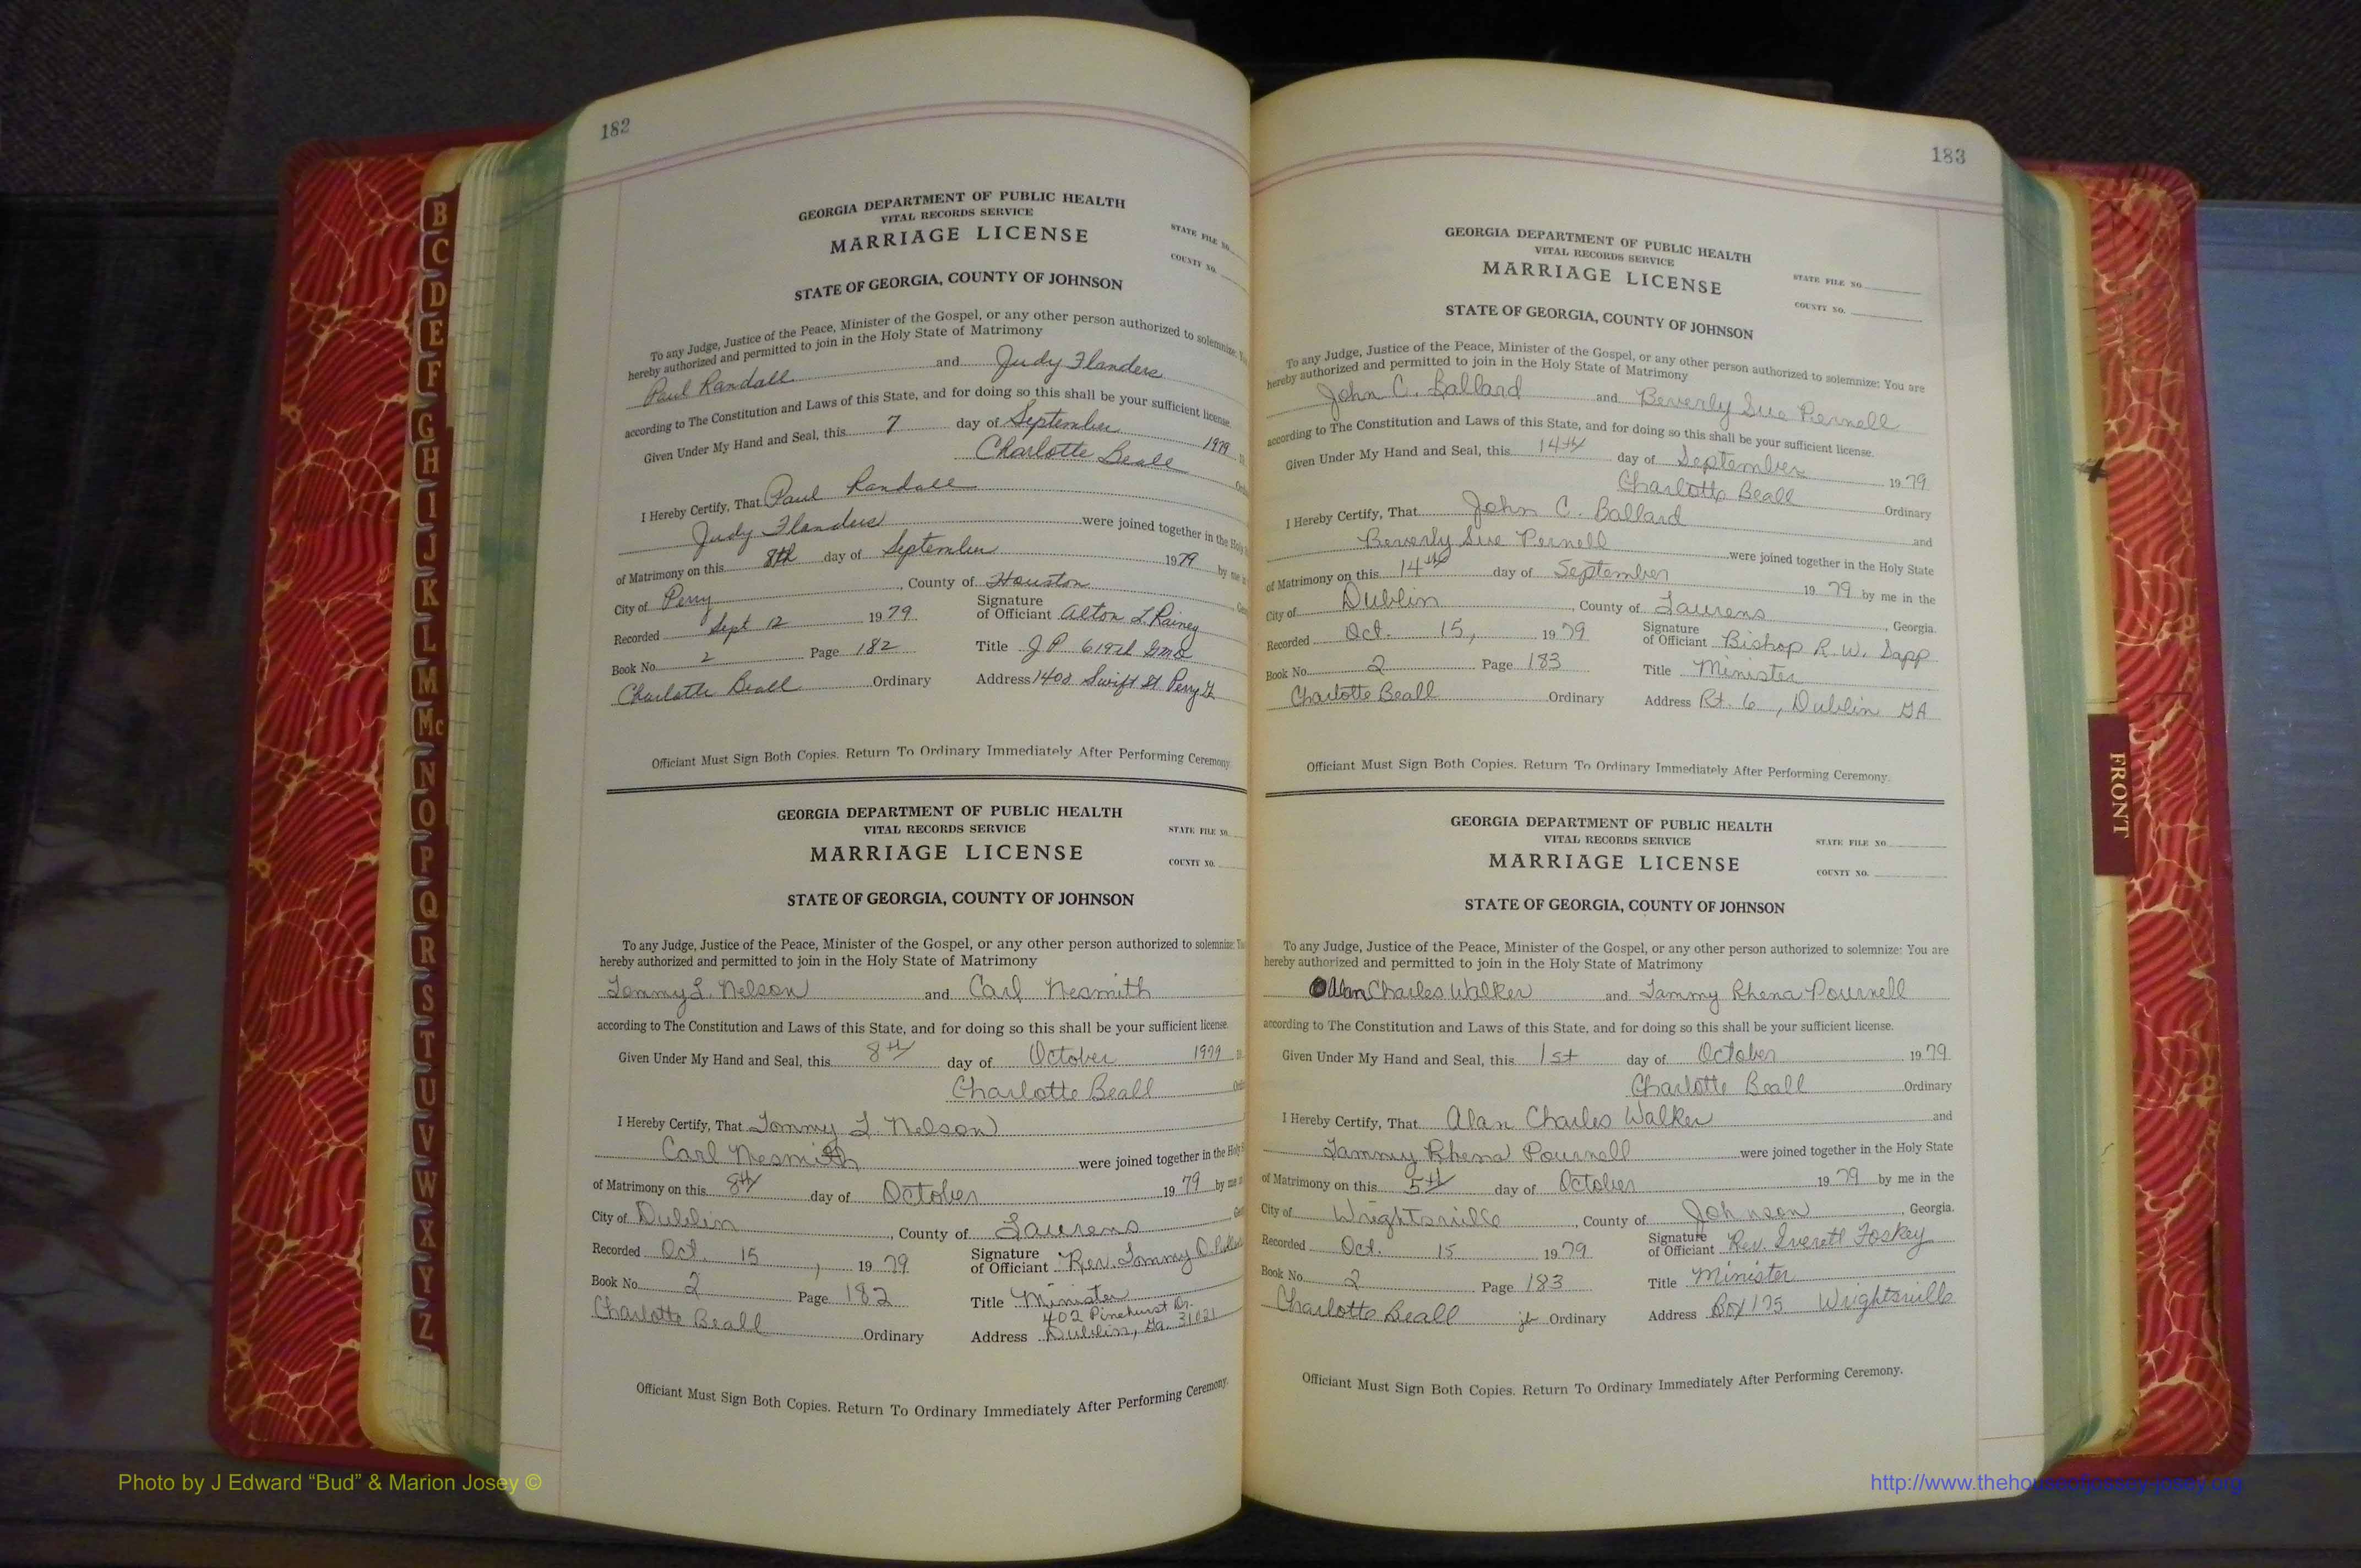 182
GEORGIA DEPARTMENT OF PUBLIC HEALTH
VITAL RECORDS SERVICE
MARRIAGE LICENSE
STATE FILE NO.
COUNTY NO.
STATE OF GEORGIA, COUNTY OF JOHNSON
To any Judge, Justice of the Peace, Minister of the Gospel, or any other person authorized to solemnize:
hereby authorized and permitted to join in the Holy State of Matrimony
Paul Randall and Judy Flanders
according to The Constitution and Laws of this State, and for doing so this shall be your sufficient license.
Given Under My Hand and Seal, this 7 day of September 1979
Charlotte Beall
I Hereby Certify, That Paul Randall
Judy Flanders were joined together in the Holy
of Matrimony on this 8th day of September 1979 by me
City of Perry, County of Houston
Recorded Sept 12 1979 Signature of Officiant Alton L. Rainey
Book No. 2 Page 182 Title J P 619th GMD
Charlotte Beall Ordinary Address 1408 Swift St Perry
Officiant Must Sign Both Copies. Return To Ordinary Immediately After Performing Ceremony
GEORGIA DEPARTMENT OF PUBLIC HEALTH
VITAL RECORDS SERVICE
MARRIAGE LICENSE
STATE FILE NO.
COUNTY NO.
STATE OF GEORGIA, COUNTY OF JOHNSON
To any Judge, Justice of the Peace, Minister of the Gospel, or any other person authorized to solemnize:
hereby authorized and permitted to join in the Holy State of Matrimony
Tommy L. Nelson and Carl Nesmith
according to The Constitution and Laws of this State, and for doing so this shall be your sufficient license.
Given Under My Hand and Seal, this 8th day of October 1979
Charlotte Beall
I Hereby Certify, That Tommy L. Nelson
Carl Nesmith were joined together in the
of Matrimony on this 8th day of October 1979 by me
City of Dublin, County of Laurens
Recorded Oct. 15, 1979 Signature of Officiant Rev. Tommy O.
Book No. 2 Page 182 Title Minister
402 Pinehurst Dr.
Charlotte Beall Ordinary Address Dublin, Ga. 31021
Officiant Must Sign Both Copies. Return To Ordinary Immediately After Performing Ceremony.
183
GEORGIA DEPARTMENT OF PUBLIC HEALTH
VITAL RECORDS SERVICE
MARRIAGE LICENSE
STATE FILE NO.
COUNTY NO.
STATE OF GEORGIA, COUNTY OF JOHNSON
To any Judge, Justice of the Peace, Minister of the Gospel, or any other person authorized to solemnize: You are
hereby authorized and permitted to join in the Holy State of Matrimony
John C. Ballard and Beverly Sue Pernell
according to The Constitution and Laws of this State, and for doing so this shall be your sufficient license.
Given Under My Hand and Seal, this 14th day of September 1979
Charlotte Beall Ordinary
I Hereby Certify, That John C. Ballard and
Beverly Sue Pernell were joined together in the Holy State
of Matrimony on this 14th day of September 1979 by me in the
City of Dublin, County of Laurens, Georgia.
Recorded Oct. 15, 1979 Signature of Officiant Bishop R. W. Sapp
Book No. 2 Page 183 Title Minister
Charlotte Beall Ordinary Address Rt. 6, Dublin GA
Officiant Must Sign Both Copies. Return To Ordinary Immediately After Performing Ceremony.
GEORGIA DEPARTMENT OF PUBLIC HEALTH
VITAL RECORDS SERVICE
MARRIAGE LICENSE
STATE FILE NO.
COUNTY NO.
STATE OF GEORGIA, COUNTY OF JOHNSON
To any Judge, Justice of the Peace, Minister of the Gospel, or any other person authorized to solemnize: You are
hereby authorized and permitted to join in the Holy State of Matrimony
Alan Charles Walker and Tammy Rhena Pournell
according to The Constitution and Laws of this State, and for doing so this shall be your sufficient license.
Given Under My Hand and Seal, this 1st day of October 1979
Charlotte Beall Ordinary
I Hereby Certify, That Alan Charles Walker and
Tammy Rhena Pournell were joined together in the Holy State
of Matrimony on this 5th day of October 1979 by me in the
City of Wrightsville, County of Johnson, Georgia.
Recorded Oct. 15 1979 Signature of Officiant Rev. Everett Foskey
Book No. 2 Page 183 Title Minister
Charlotte Beall Ordinary Address Box 175 Wrightsville
Officiant Must Sign Both Copies. Return To Ordinary Immediately After Performing Ceremony.
B
C
D
E
F
G
H
I
J
K
L
M
Mc
N
O
P
Q
R
S
T
U
V
W
X
Y
Z
FRONT
Photo by J Edward “Bud” & Marion Josey ©
http://www.thehouseofjossey-josey.org